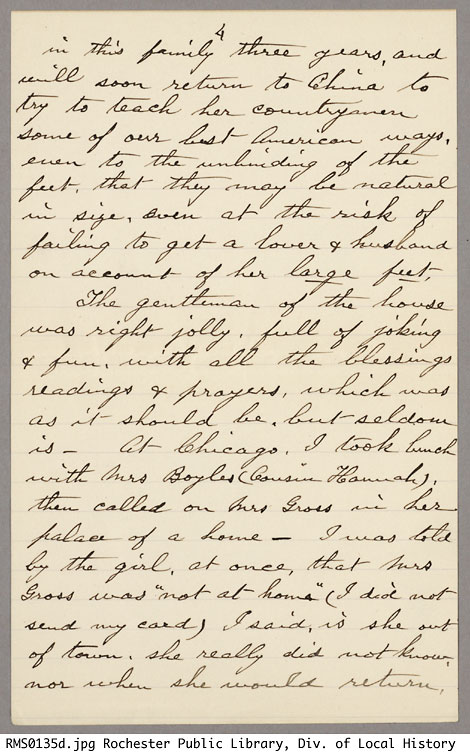 4
in this family three years, and
will soon return to China to
try to teach her countrymen
some of our best American ways,
even to the unbinding of the
feet, that they may be natural
in size, even at the risk of
failing to get a lover & husband
on account of her large feet.
The gentleman of the house
was right jolly, full of joking
& fun, with all the blessings
readings & prayers, which was
as it should be, but seldom
is - At Chicago, I took lunch
with Mrs Boyles (Cousin Hannah),
then called on Mrs Gross in her
palace of a home - I was told
by the girl, at once, that Mrs
Gross was "not at home" (I did not
send my card) I said, is she out
of town, she really did not know,
nor when she would return,
RMS0135d.jpg Rochester Public Library, Div. of Local History